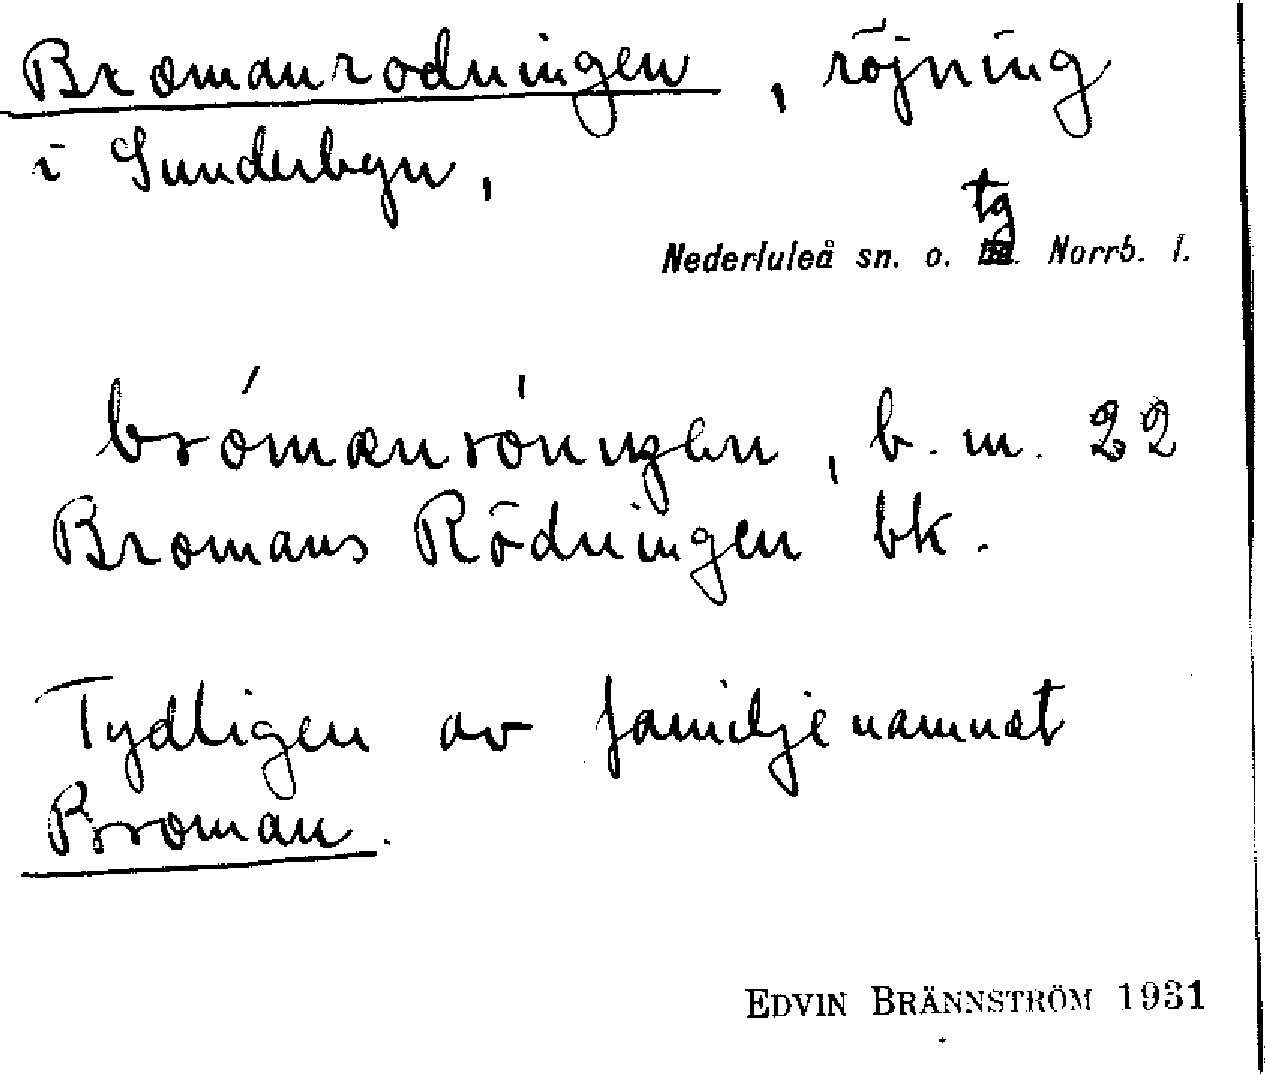 Bromanrodningen, röjning
i Sunderbyn,
Nederluleå sn. o. tg Norrb. l.
brómanróningen, b. m. 22
Bromans Rödningen bk.
Tydligen av familjenamnet
Broman.
EDVIN BRÄNNSTRÖM 1931